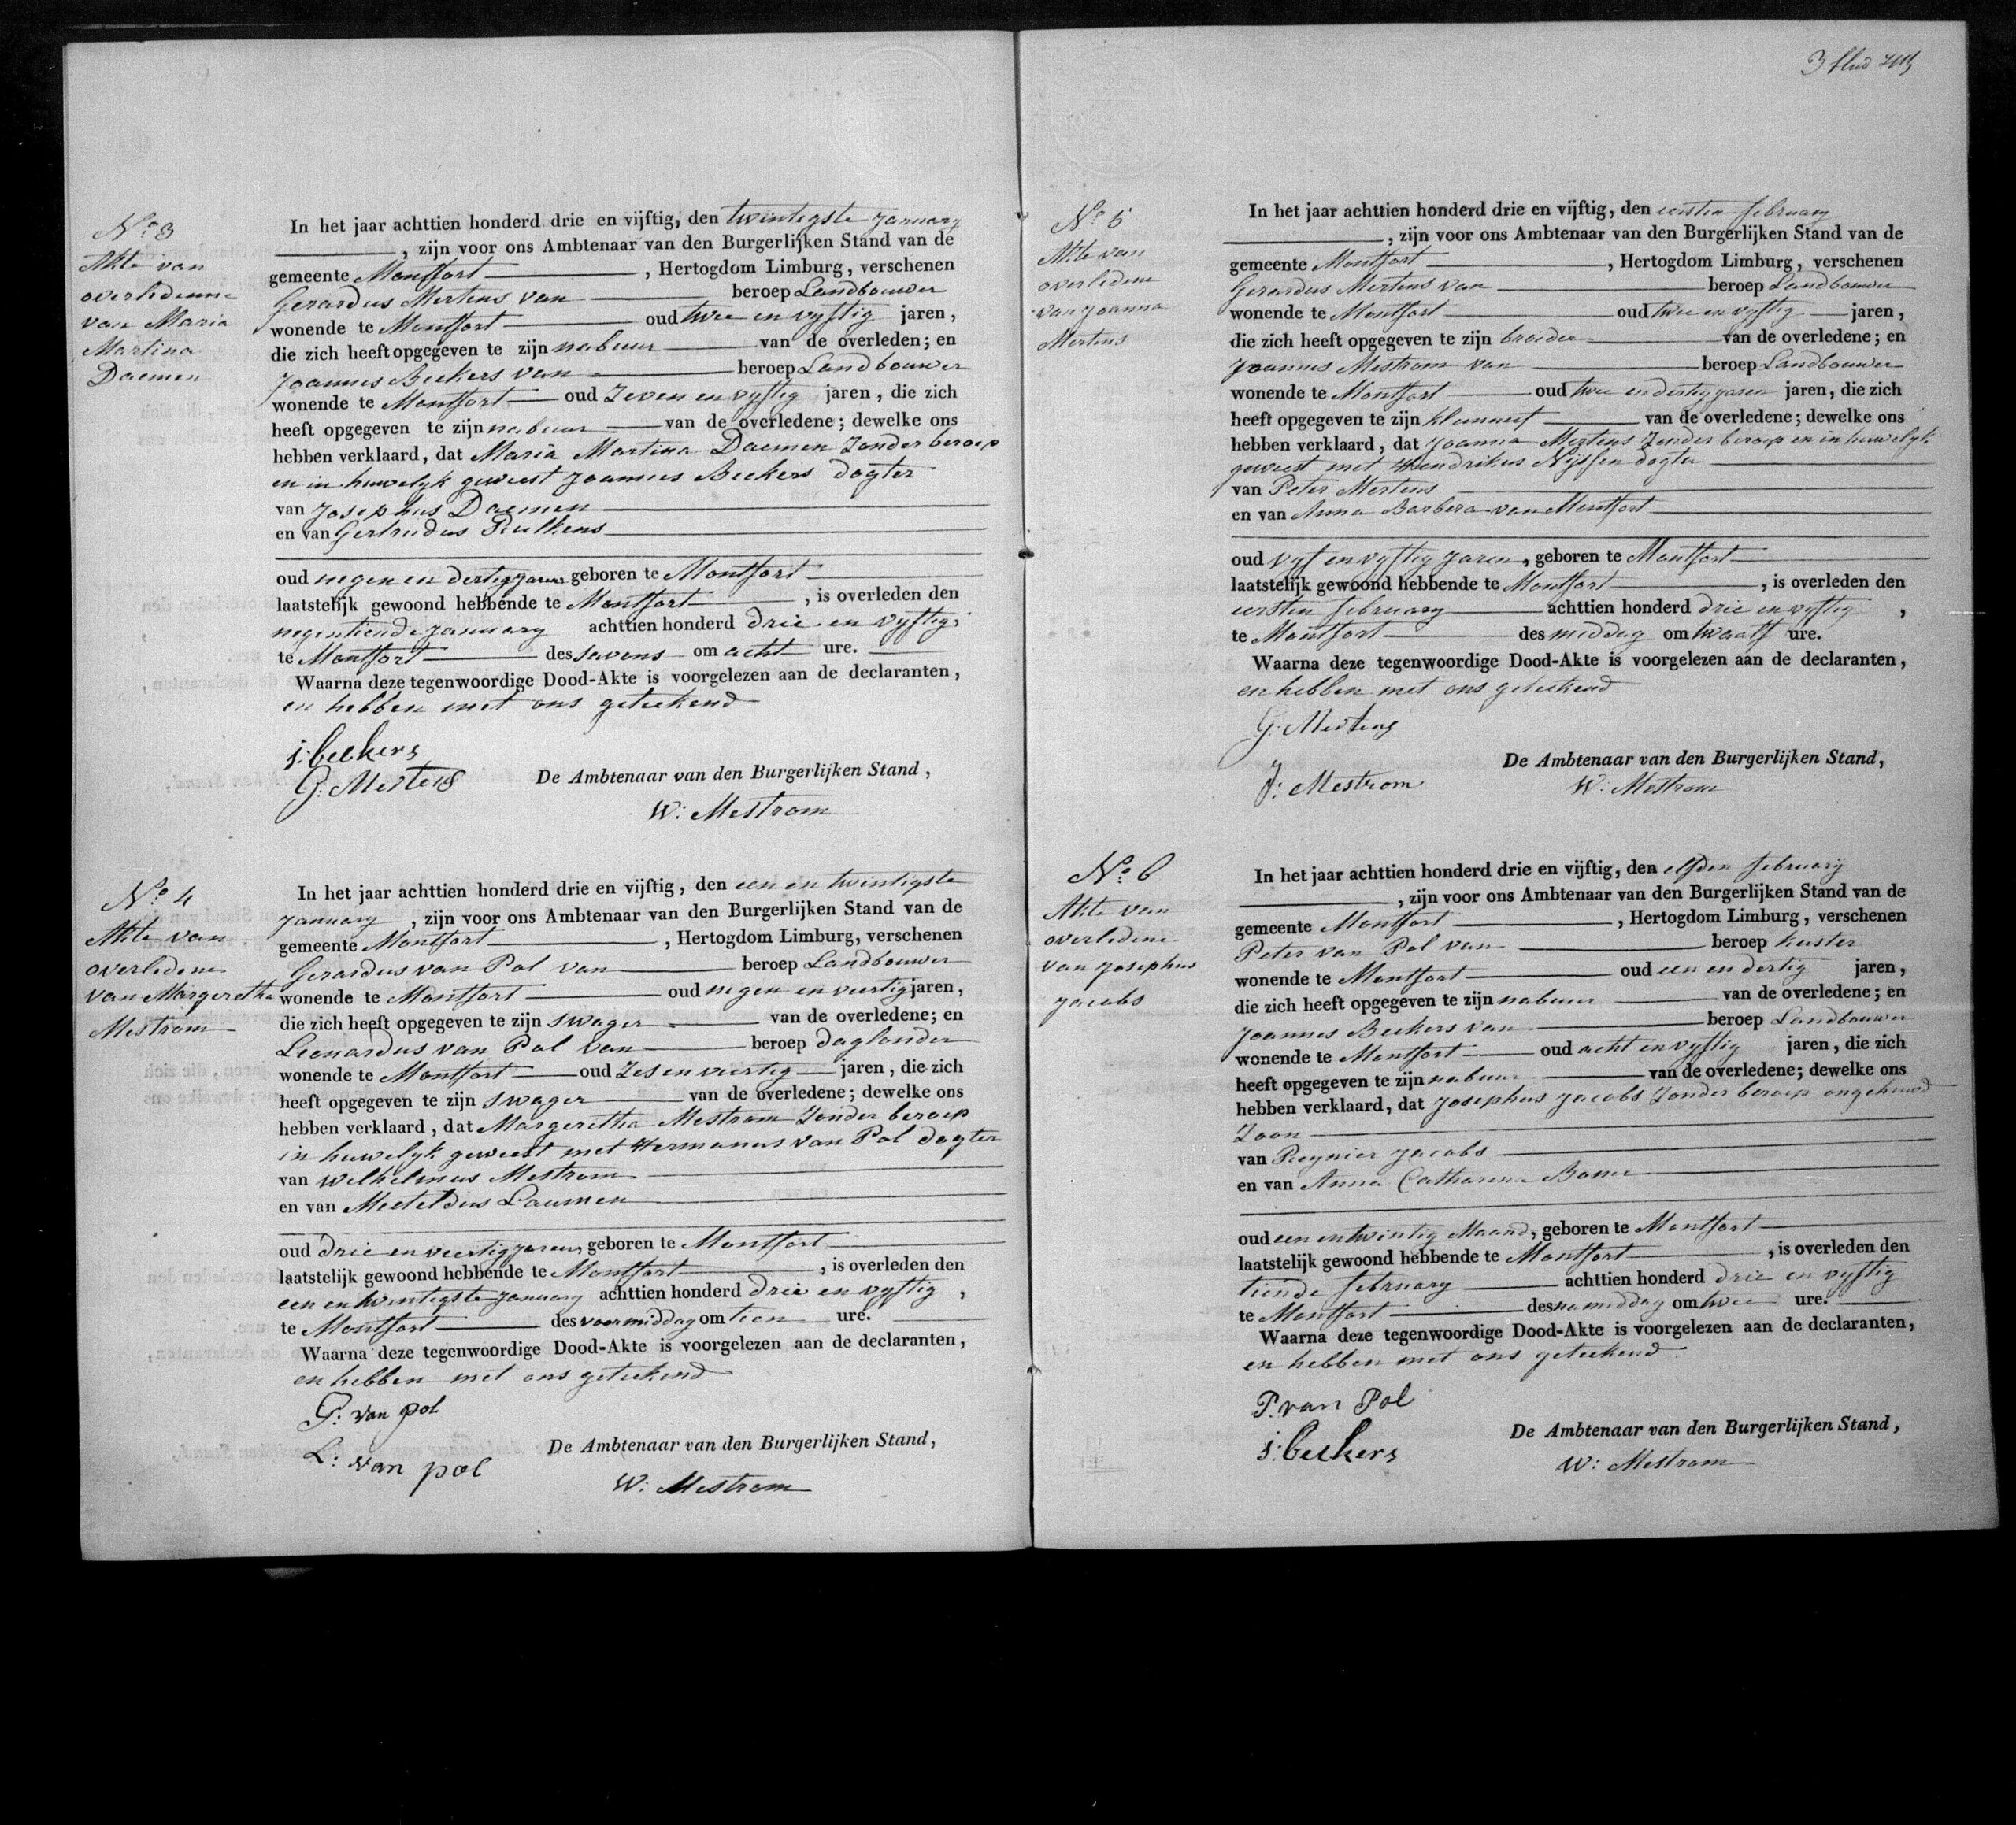 N.o 3
Akte van
overledenne
van Maria
Martina
Daemen
In het jaar achttien honderd drie en vijftig, den twintigste January
, zijn voor ons Ambtenaar van den Burgerlijken Stand van de
gemeente Montfort , Hertogdom Limburg, verschenen
Gerardus Mertens van beroep Landbouwer
wonende te Montfort oud twee en vyftig jaren,
die zich heeft opgegeven te zijn nabuur van de overleden; en
Joannes Beckers van beroep Landbouwer
wonende te Montfort oud Zeven en vyftig jaren, die zich
heeft opgegeven te zijn nabuur van de overledene; dewelke ons
hebben verklaard, dat Maria Martina Daemen Zonder beroep
en in huwelyk geweest Joannes Beckers dogter
van Josephus Daemen
en van Gertrudus Rulkens
oud negen en dertig jaren geboren te Montfort
laatstelijk gewoond hebbende te Montfort , is overleden den
negentiende January achttien honderd drie en vyftig,
te Montfort des savens om acht ure.
Waarna deze tegenwoordige Dood-Akte is voorgelezen aan de declaranten,
en hebben met ons geteekend
j: beckers
G: Mertens
De Ambtenaar van den Burgerlijken Stand,
W: Mestrom
N.o 4
Akte van
overledene
van Margeretha
Mestrom
In het jaar achttien honderd drie en vijftig, den een en twintigste
January , zijn voor ons Ambtenaar van den Burgerlijken Stand van de
gemeente Montfort , Hertogdom Limburg, verschenen
Gerardus van Pol van beroep Landbouwer
wonende te Montfort oud negen en veertig jaren,
die zich heeft opgegeven te zijn swager van de overledene; en
Leonardus van Pol van beroep daglonder
wonende te Montfort oud Zes en veertig jaren, die zich
heeft opgegeven te zijn swager van de overledene; dewelke ons
hebben verklaard, dat Margeretha Mestrom Zonder beroep
in huwelyk geweest met Hermanus van Pol dogter
van Wilhelmus Mestrom
en van Mechteldus Laumen
oud drie en veertig jaren, geboren te Montfort
laatstelijk gewoond hebbende te Montfort , is overleden den
een en twintigste January achttien honderd drie en vyftig ,
te Montfort des voormiddag om tien ure.
Waarna deze tegenwoordige Dood-Akte is voorgelezen aan de declaranten,
en hebben met ons geteekend
G: van pol
L: van pol
De Ambtenaar van den Burgerlijken Stand,
W: Mestrom
3
N.o 5
Akte van
overledene
van Joanna
Mertens
In het jaar achttien honderd drie en vijftig, den eersten february
, zijn voor ons Ambtenaar van den Burgerlijken Stand van de
gemeente Montfort , Hertogdom Limburg, verschenen
Gerardus Mertens van beroep Landbouwer
wonende te Montfort oud twee en vyftig jaren,
die zich heeft opgegeven te zijn broeder van de overledene; en
Joannes Mestrom van beroep Landbouwer
wonende te Montfort oud twee en dertig jaren jaren, die zich
heeft opgegeven te zijn van de overledene; dewelke ons
hebben verklaard, dat Joanna Mertens Zonder beroep en in huwelyk
geweest met Hendrikus Nijssen dogter
van Peter Mertens
en van Anna Barbera van Montfort
oud vyf en vyftig jaren, geboren te Montfort
laatstelijk gewoond hebbende te Montfort , is overleden den
eersten february achttien honderd drie en vyftig ,
te Montfort des middag om twaalf ure.
Waarna deze tegenwoordige Dood-Akte is voorgelezen aan de declaranten,
en hebben met ons geteekend
G: Mertens
J: Mestrom
De Ambtenaar van den Burgerlijken Stand,
W: Mestrom
N.o 6
Akte van
overledene
van Josephus
Jacobs
In het jaar achttien honderd drie en vijftig, den elfden february
, zijn voor ons Ambtenaar van den Burgerlijken Stand van de
gemeente Montfort , Hertogdom Limburg, verschenen
Peter van Pol van beroep kuster
wonende te Montfort oud een en dertig jaren,
die zich heeft opgegeven te zijn nabuur van de overledene; en
Joannes Beckers van beroep Landbouwer
wonende te Montfort oud acht en vyftig jaren, die zich
heeft opgegeven te zijn nabuur van de overledene; dewelke ons
hebben verklaard, dat Josephus Jacobs Zonder beroep ongehuwd
Zoon
van Reynier Jacobs
en van Anna Catharina Bome
oud een en twintig Maand, geboren te Montfort
laatstelijk gewoond hebbende te Montfort , is overleden den
tiende february achttien honderd drie en vyftig
te Montfort des namiddag om twee ure.
Waarna deze tegenwoordige Dood-Akte is voorgelezen aan de declaranten,
en hebben met ons geteekend
P. van Pol
j: beckers
De Ambtenaar van den Burgerlijken Stand,
W: Mestrom